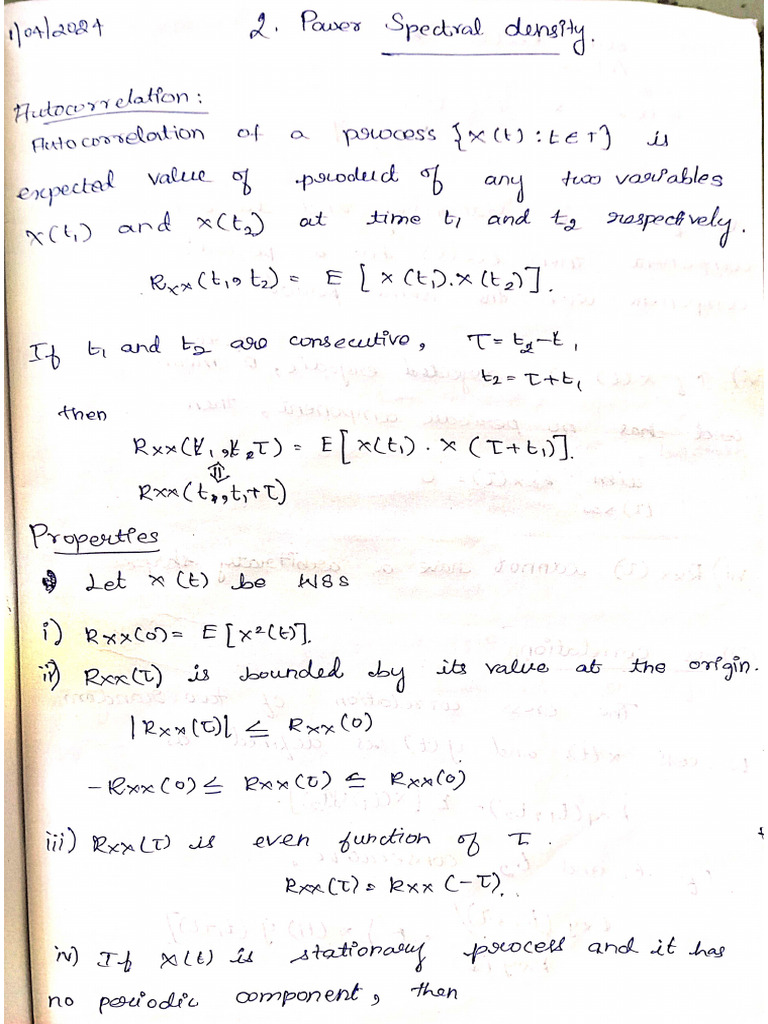 1/04/2024
2. Power Spectral density.
Autocorrelation:
Autocorrelation of a process {X(t) : t ∈ T} is
expected value of product of any two variables
X(t₁) and X(t₂) at time t₁ and t₂ respectively.
Rxx(t₁, t₂) = E [ X (t₁). X(t₂)].
If t₁ and t₂ are consecutive, τ = t₂ - t₁
t₂ = τ + t₁
then
Rxx( τ) = E[ X(t₁) . X (τ + t₁)].
⇕
Rxx(t₁, t₁+τ)
Properties
Let X (t) be WSS
i) Rxx(0) = E [X²(t)].
ii) Rxx(τ) is bounded by its value at the origin.
|Rxx(τ)| ≤ Rxx(0)
-Rxx(0) ≤ Rxx(τ) ≤ Rxx(0)
iii) Rxx(τ) is even function of τ.
Rxx(τ) = Rxx (-τ).
iv) If X(t) is stationary process and it has
no periodic component, then